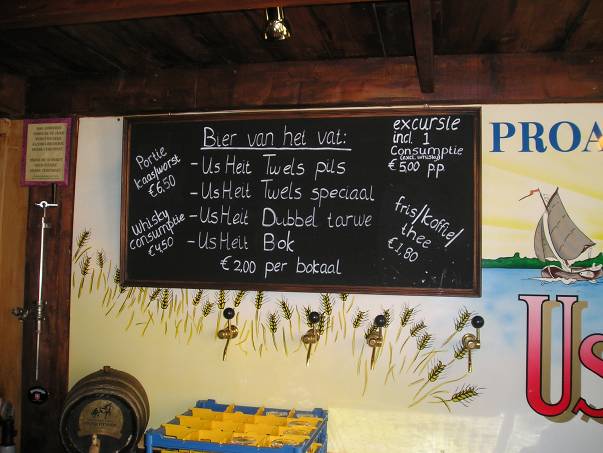 Bier van het vat:
- Us Heit Twels pils
- Us Heit Twels speciaal
- Us Heit Dubbel tarwe
- Us Heit Bok
€ 2,00 per bokaal
Portie
kaas/worst
€ 6,50
Whisky
consumptie
€ 4,50
excursie
incl. 1
Consumptie
(excl. whisky)
€ 5,00 p.p.
fris/koffie/
thee
€ 1,80
PROA
Us